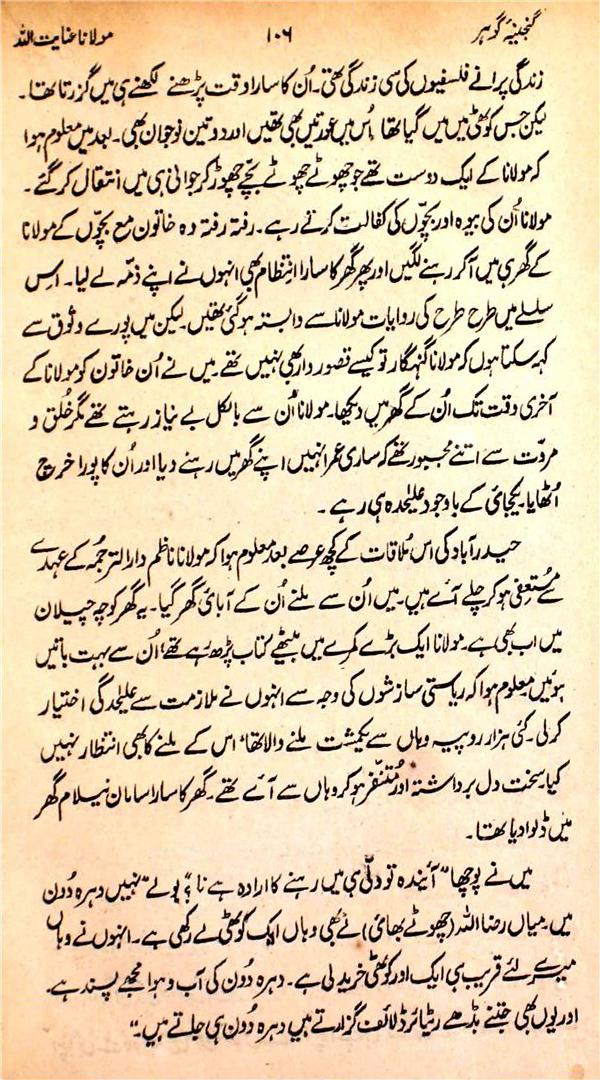 گنجینۂ گوہر ۱۰۶ مولانا عنایت اللہ
زندگی پرانے فلسفیوں کی سی زندگی تھی۔ اُن کا سارا وقت پڑھنے لکھنے ہی میں گزرتا تھا۔
لیکن جس کوٹھی میں میں گیا تھا اُس میں عورتیں بھی تھیں اور دو تین نوجوان بھی۔ بعد میں معلوم ہوا
کہ مولانا کے ایک دوست تھے جو چھوٹے چھوٹے بچّے چھوڑ کر جوانی ہی میں انتقال کر گئے۔
مولانا اُن کی بیوہ اور بچّوں کی کفالت کرتے رہے۔ رفتہ رفتہ وہ خاتون مع بچّوں کے مولانا
کے گھر ہی میں آ کر رہنے لگیں اور پھر گھر کا سارا انتظام بھی انہوں نے اپنے ذمّہ لے لیا۔ اس
سلسلے میں طرح طرح کی روایات مولانا سے وابستہ ہو گئی تھیں۔ لیکن میں پورے وثوق سے
کہہ سکتا ہوں کہ مولانا گنہگار تو کیسے قصور وار بھی نہیں تھے۔ میں نے اُن خاتون کو مولانا کے
آخری وقت تک اُن کے گھر میں دیکھا۔ مولانا اُن سے بالکل بے نیاز رہتے تھے مگر خُلق و
مروّت سے اتنے مجبور تھے کہ ساری عمر انہیں اپنے گھر میں رہنے دیا اور اُن کا پورا خرچ
اُٹھایا۔ یکجائی کے باوجود علیٰحدہ ہی رہے۔
حیدرآباد کی اس ملاقات کے کچھ عرصے بعد معلوم ہوا کہ مولانا ناظم دارالترجمہ کے عہدے
سے مُستعفی ہو کر چلے آئے ہیں۔ میں اُن سے ملنے اُن کے آبائی گھر گیا۔ یہ گھر کوچہ چیلان
میں اب بھی ہے۔ مولانا ایک بڑے کمرے میں بیٹھے کتاب پڑھ رہے تھے، اُن سے بہت باتیں
ہوئیں معلوم ہوا کہ ریاستی سازشوں کی وجہ سے انہوں نے ملازمت سے علیٰحدگی اختیار
کر لی۔ کئی ہزار روپیہ وہاں سے یکمشت ملنے والا تھا، اس کے ملنے کا بھی انتظار نہیں
کیا۔ سخت دل برداشتہ اور مُتنفّر ہو کر وہاں سے آئے تھے۔ گھر کا سارا سامان نیلام گھر
میں ڈلوا دیا تھا۔
میں نے پوچھا "آئیندہ تو دلّی ہی میں رہنے کا ارادہ ہے نا؟" بولے "نہیں دہرہ دُون
میں۔ میاں رضا اللہ (چھوٹے بھائی) نے بھی وہاں ایک کوٹھی لے رکھی ہے۔ انہوں نے وہاں
میرے لئے قریب ہی ایک اور کوٹھی خرید لی ہے۔ دہرہ دُون کی آب و ہوا مجھے پسند ہے۔
اور یوں بھی جتنے بڈھے ریٹائرڈ لائف گزارتے ہیں دہرہ دُون ہی جاتے ہیں۔"